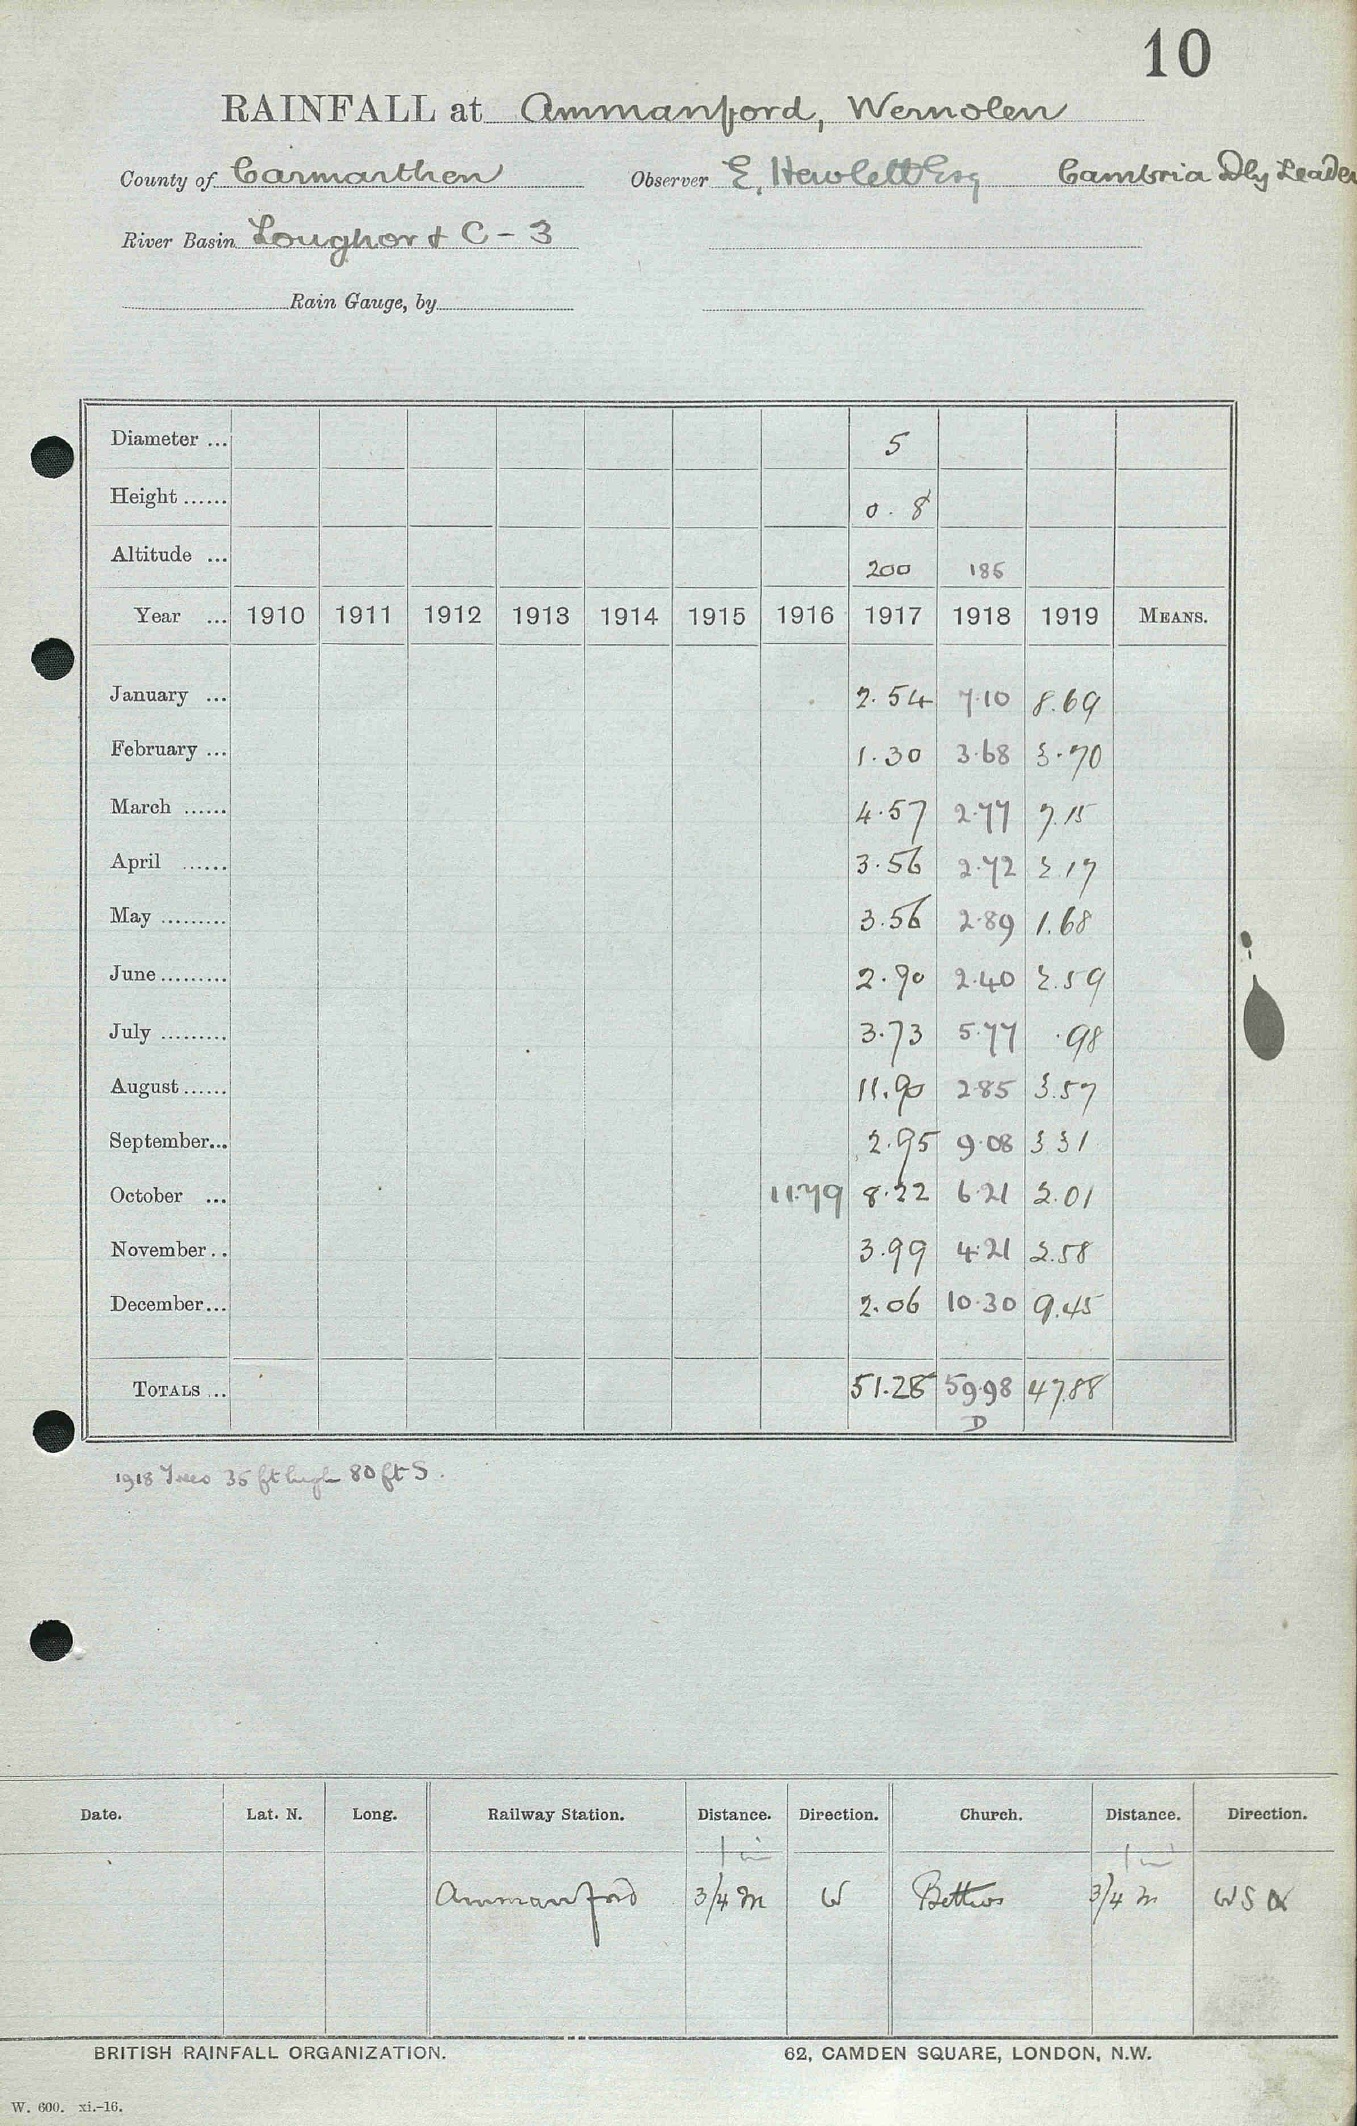 10
RAINFALL at Ammanford, Wernolen
County of Carmarthen Observer E. Hewlett Esq Cambria Dly Leader
River Basin Loughor & C - 3
Rain Gauge, by
Diameter ... 5
Height ...... 0. 8
Altitude ... 200 185
Year ... 1910 1911 1912 1913 1914 1915 1916 1917 1918 1919 MEANS.
January ... 2.54 7.10 8.69
February ... 1.30 3.68 3.70
March ...... 4.57 2.77 7.15
April ...... 3.56 2.72 2.17
May ......... 3.56 2.89 1.68
June ......... 2.90 2.40 2.59
July ......... 3.73 5.77 .98
August ...... 11.90 2.85 3.57
September... 2.95 9.08 3.31
October ... 11.79 8.22 6.21 2.01
November .. 3.99 4.21 2.58
December... 2.06 10.30 9.45
TOTALS ... 51.28 59.98 47.88
D
1918 Trees 35 ft high 80 ft S.
Date. Lat. N. Long. Railway Station. Distance. Direction. Church. Distance. Direction.
1 m 1 m
Ammanford 3/4 m W Bettws 3/4 m W S W
BRITISH RAINFALL ORGANIZATION. 62, CAMDEN SQUARE, LONDON, N.W.
W. 600. xi.-16.